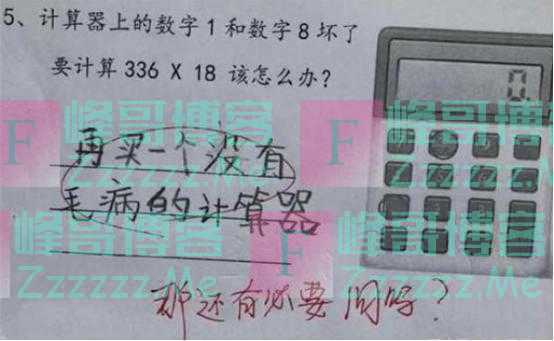 5、计算器上的数字1和数字8坏了
要计算336 X 18 该怎么办?
0
再买一个没有
毛病的计算器
那还有必要问吗?
F 峰哥博客
Zzzzzz.Me
F 峰哥博客
Zzzzzz.Me
F 峰哥博客
Zzzzzz.Me
F 峰哥博客
Zzzzzz.Me